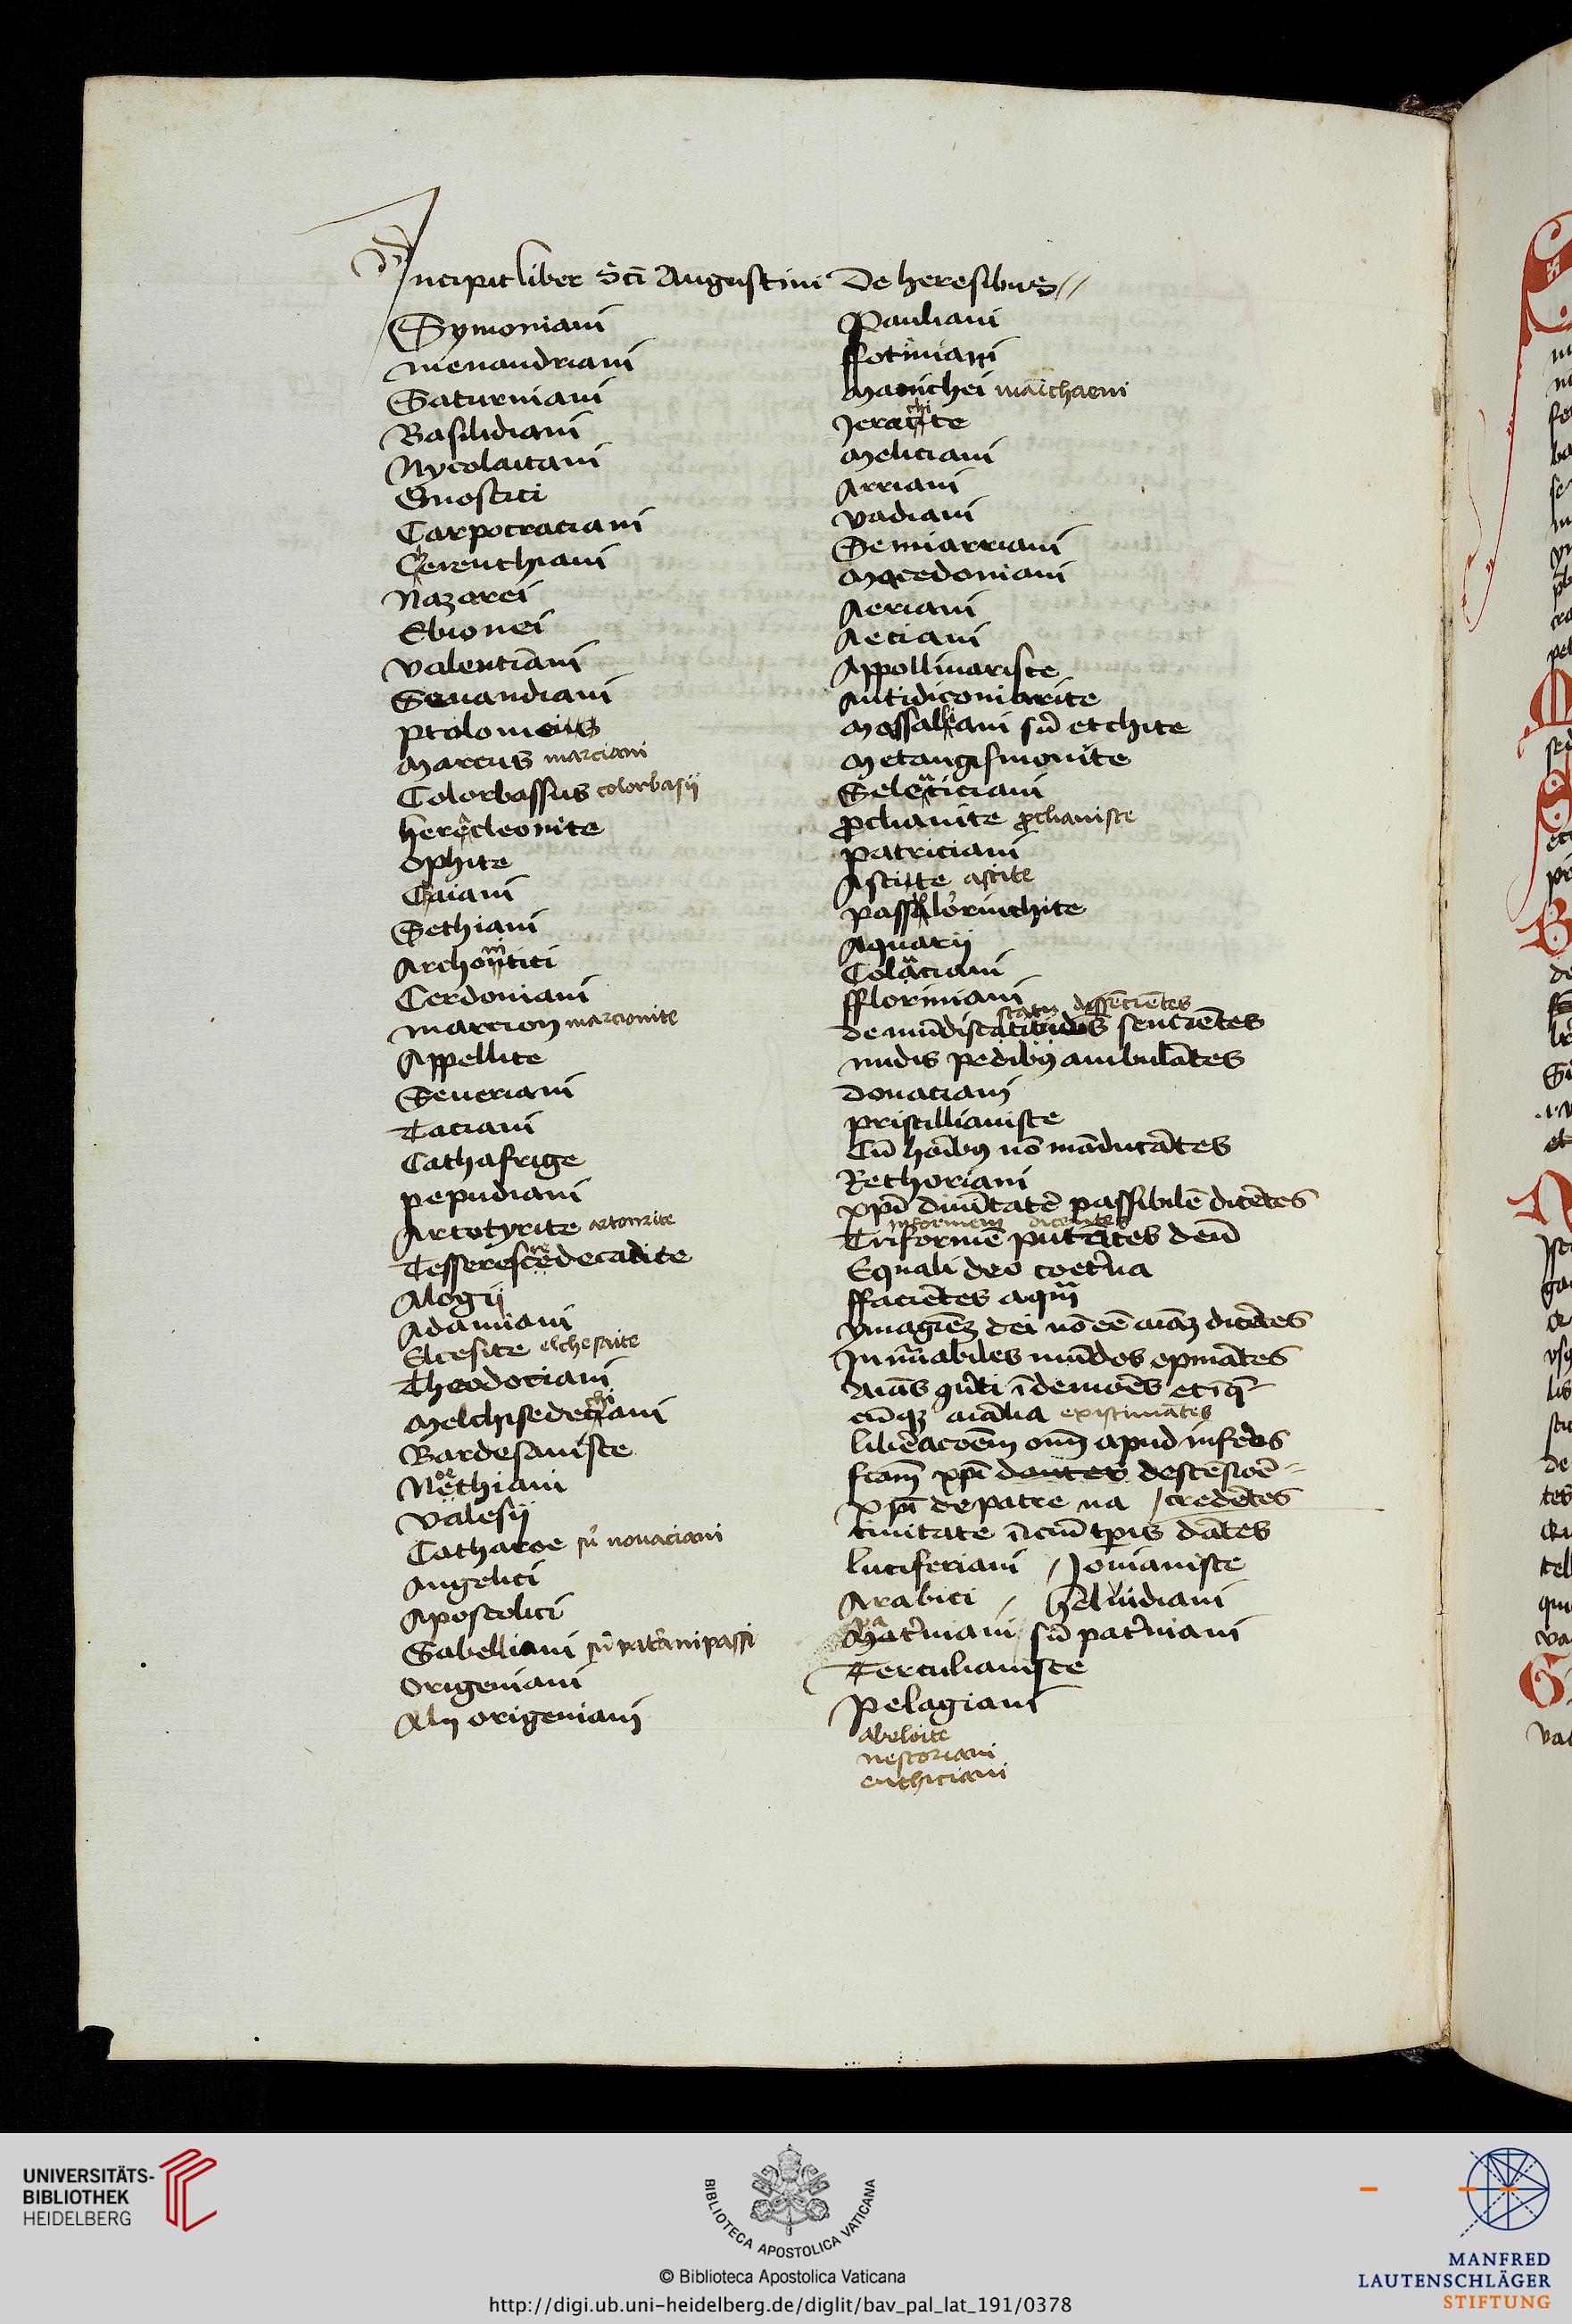 Incipit liber Sci Augustini De heresibus //
Symoniani
menandriani
Saturniani
Basilidiani
Nycolaitani
Gnostici
Carpocraciani
Cerenthiani
Nazarei
Ebionei
valentiniani
Secundiani
ptolomeus
Marcus marciani
Colorbassus colorbasij
heracleonite
Ophite
Caiani
Sethiani
Archontici
Cerdoniani
marcion marcionite
Appellite
Seueriani
Taciani
Cathafrige
pepudiani
Artotyrite
Tesserescedecadite
Alogij
Adamiani
Elcesite elchesaite
Theodociani
Melchisedechiani
Bardesaniste
Noethiani
Valesij
Catharoe sū nouaciani
Angelici
Apostolici
Sabelliani sū patripassi
Origeniani
Alij origeniani
Pauliani
ffotiniani
Manichei
Jerachite
Meliciani
Arriani
vadiani
Semiarriani
Macedoniani
Aeriani
Aeciani
Appollinariste
Antidicomarite
Massaliani sū etchite
Metangismonite
Seleuciciani
proclianite proclianiste
patriciani
Ascitte ascite
passalorinchite
Aquarij
Coluciani
ffloriniani
statu dissēciētes
de mūdi statibus senciētes
nudis pedibꝯ ambulātes
donaciani
priscillianiste
Cū hoībꝯ nō māducātes
Rethoriani
xpī diuītatē passibilē dicētes
informem dicentes
Triformē putātes deū
Equali deo coeterna
ffaciētes aquā
ymagiēꝫ dei nō eē aiāꝫ dicētes
Innūabiles mūdos opinātes
Aīas ī demōēs et ī q-
cūqꝫ aiālia existimātes
liberacōēm oīm apud inferos
fcām xpī descēsiōē-
xpm de patre na / credētes
tiuitate īiciū tꝑis dātes
luciferiani / Jouinianiste
Arabici / heluidiani
Materniani sū paterniani
Terculianiste
Pelagiani
abeloite
nestoriani
euthiciani
UNIVERSITÄTS-
BIBLIOTHEK
HEIDELBERG
BIBLIOTECA APOSTOLICA VATICANA
© Biblioteca Apostolica Vaticana
http://digi.ub.uni-heidelberg.de/diglit/bav_pal_lat_191/0378
MANFRED
LAUTENSCHLÄGER
STIFTUNG